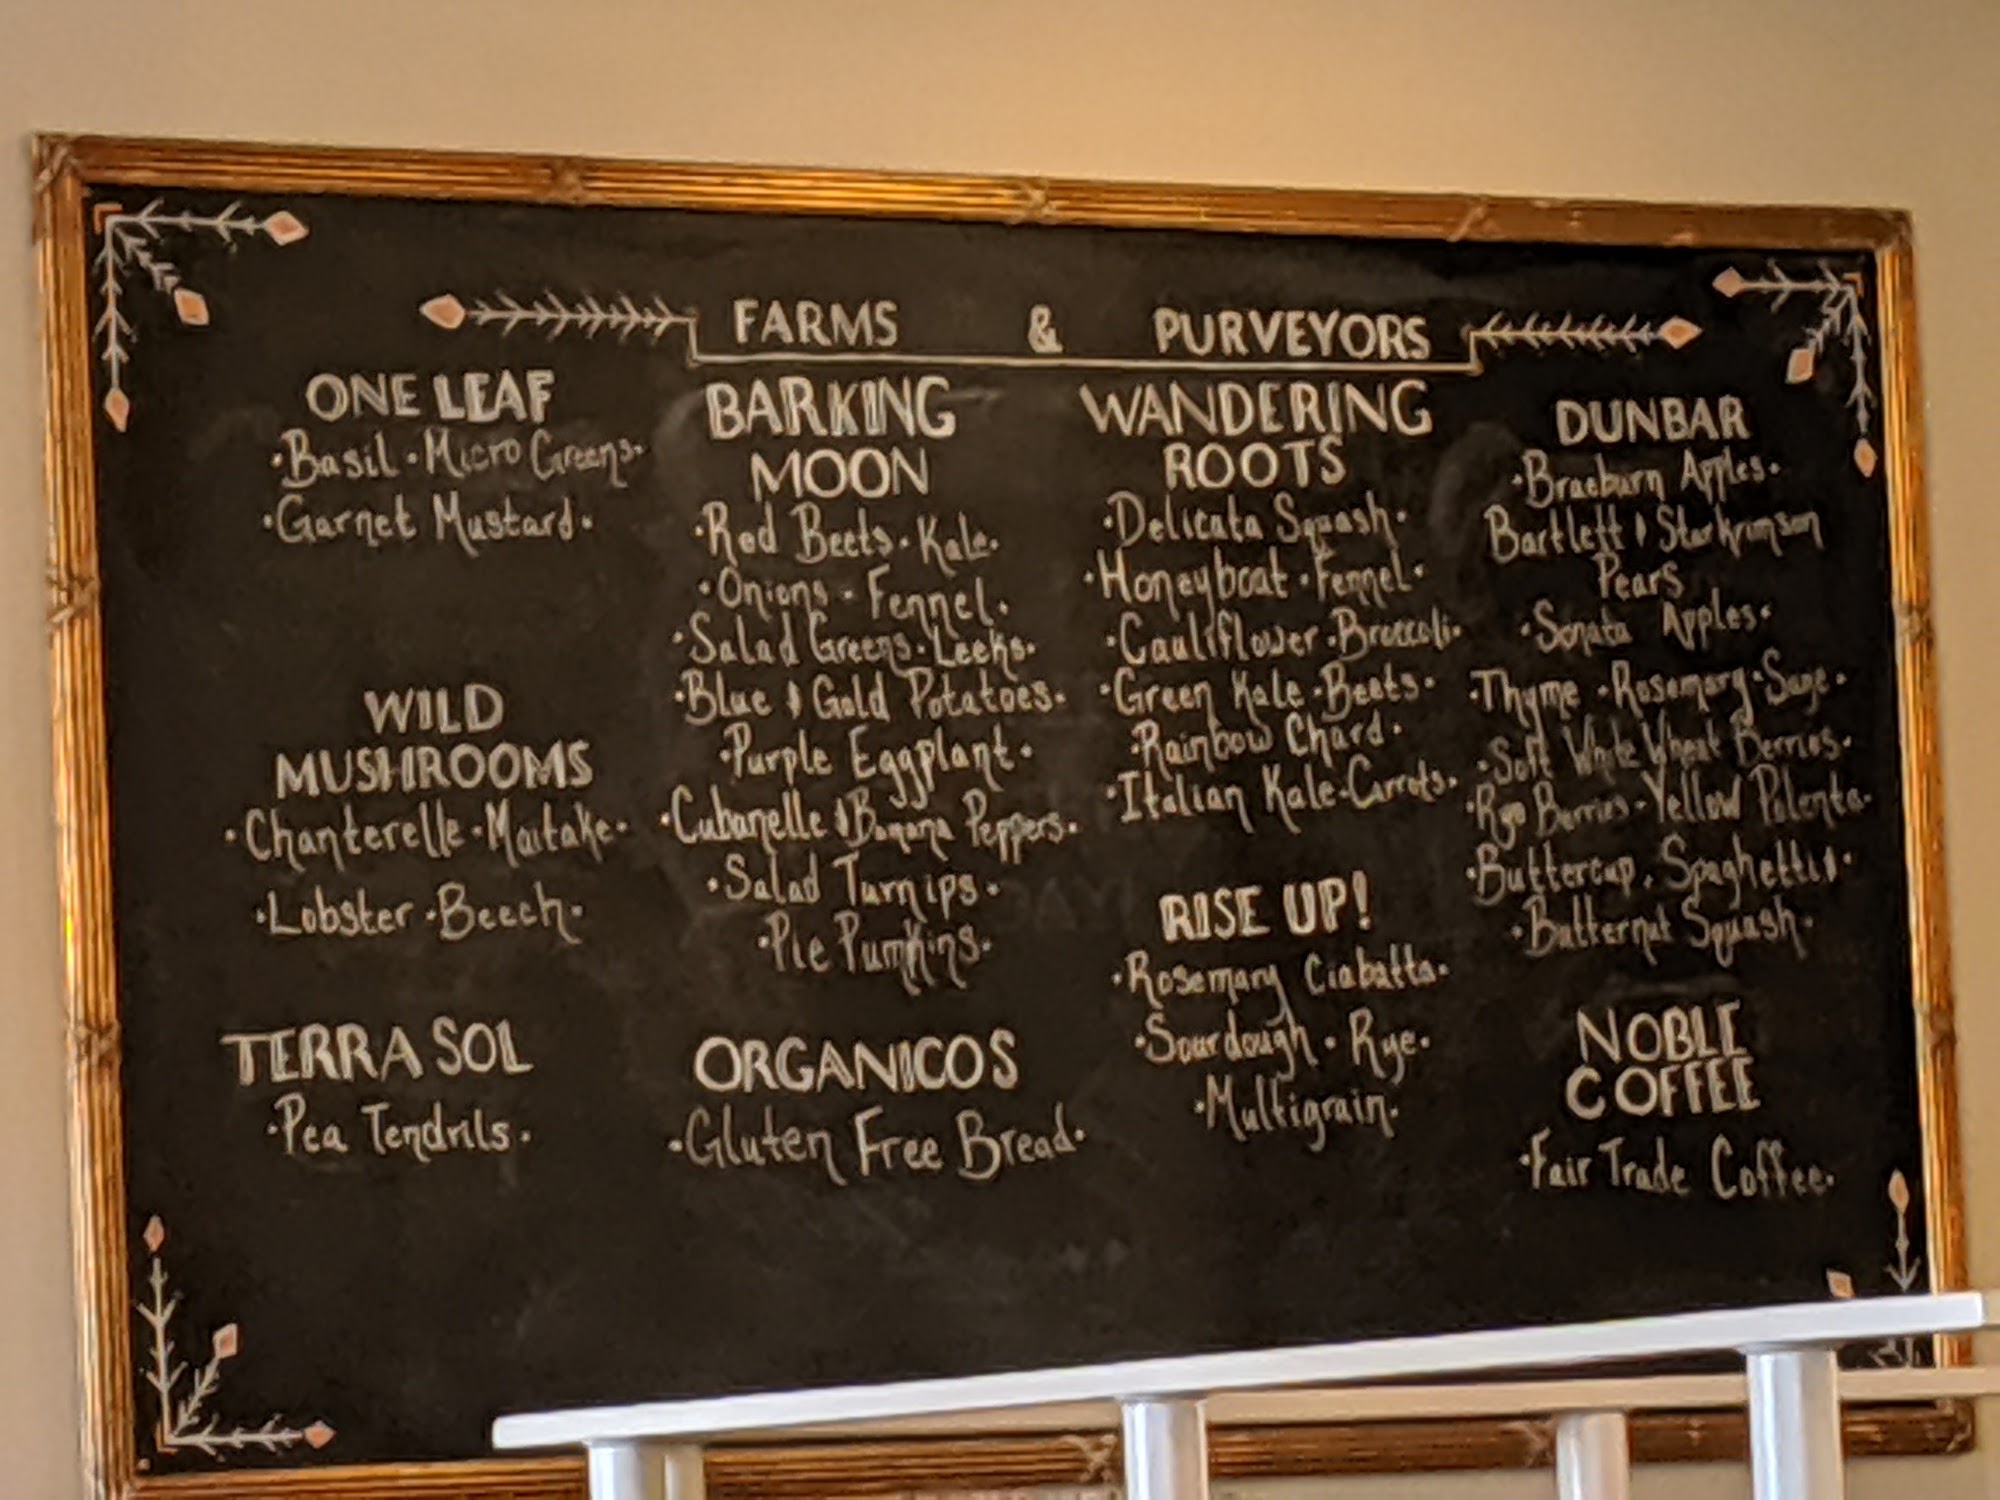 FARMS & PURVEYORS
ONE LEAF
·Basil·Micro Greens·
·Garnet Mustard·
WILD
MUSHROOMS
·Chanterelle·Maitake·
·Lobster·Beech·
TERRA SOL
·Pea Tendrils·
BARKING
MOON
·Red Beets·Kale·
·Onions·Fennel·
·Salad Greens·Leeks·
·Blue & Gold Potatoes·
·Purple Eggplant·
·Cubanelle & Banana Peppers·
·Salad Turnips·
·Pie Pumkins·
ORGANICOS
·Gluten Free Bread·
WANDERING
ROOTS
·Delicata Squash·
·Honeyboat·Fennel·
·Cauliflower·Broccoli·
·Green Kale·Beets·
·Rainbow Chard·
·Italian Kale·Carrots·
RISE UP!
·Rosemary Ciabatta·
·Sourdough·Rye·
·Multigrain·
DUNBAR
·Braeburn Apples·
Bartlett & Starkrimson
Pears
·Sonata Apples·
·Thyme·Rosemary·Sage·
·Soft White Wheat Berries·
·Rye Berries·Yellow Polenta·
·Buttercup, Spaghetti &·
·Butternut Squash·
NOBLE
COFFEE
·Fair Trade Coffee·